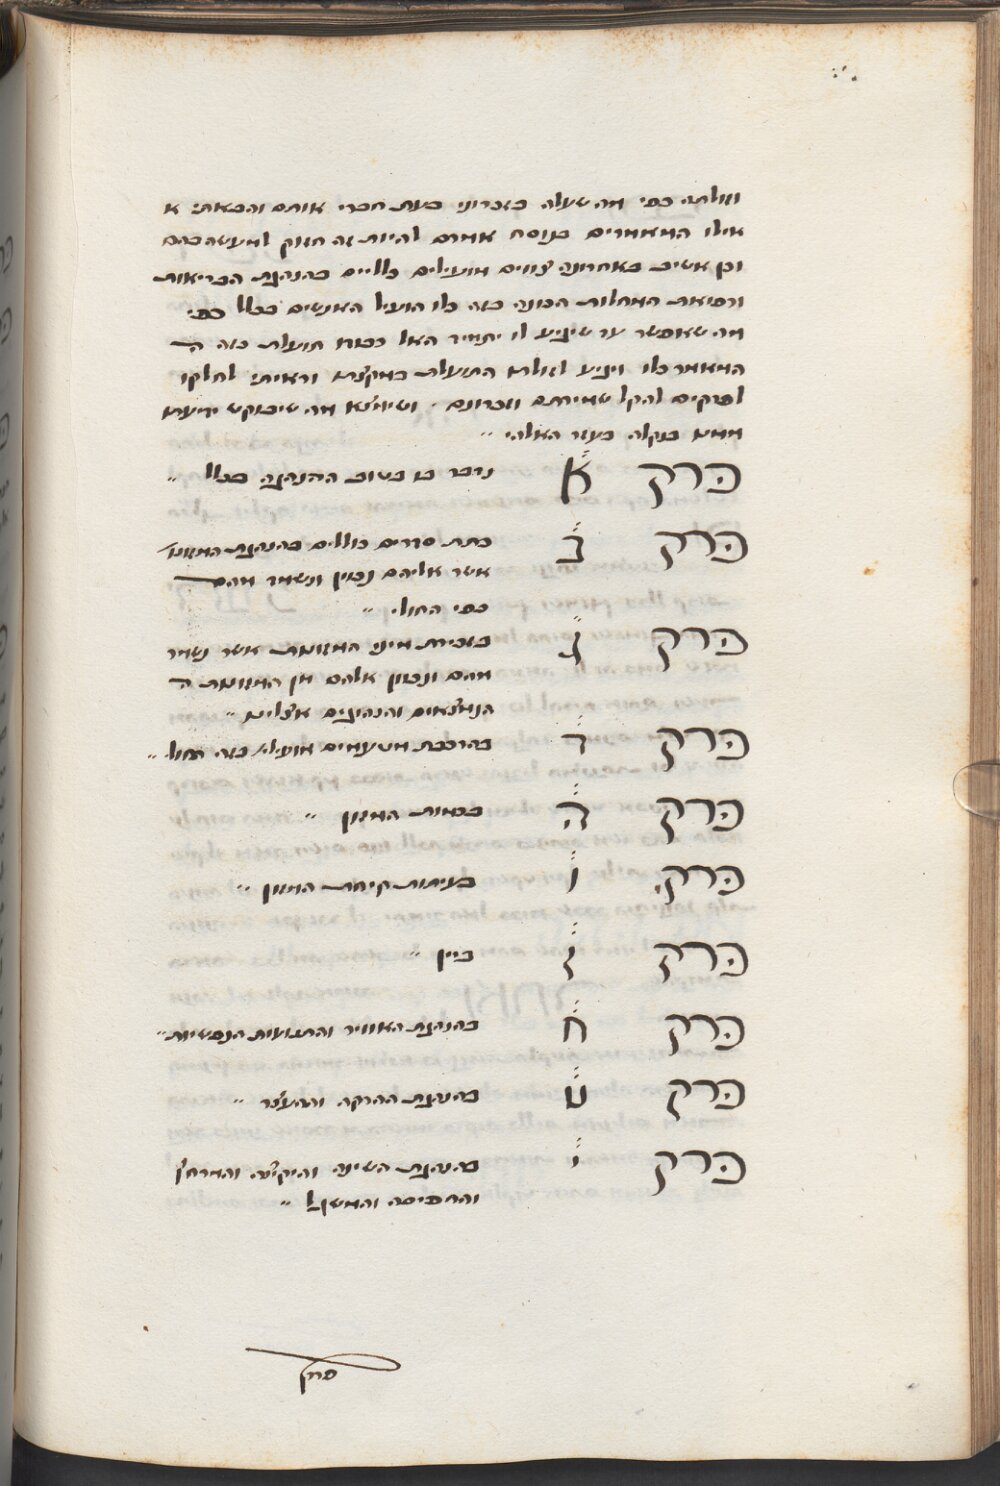 זולתה כפי מה שעלה בזכרוני בעת חברי אותם והבאתי א
אילו המאמרים בנוסח אומרם להיות זה חזוק למעשה בהם
וכן אשים באחרונה צוויים מועילים כלליים בהנהגת הבריאות
ורפואת המחלות הכונה בזה כלו הועיל האנשים בכלל כפי
מה שאפשר עד שיגיע לו יתמיד האל כבודו תועלת בזה ה
המאמר כלו ויגיע לזולתו התועלת במקצתו וראיתי לחלקו
לפרקים להקל שמירתם וזכרונם . ושימצא מה שיבוקש ידיעתו
ממנו בנקלה בעזר האלהי
פרק א נדבר בו בטוב ההנהגה בכלל
פרק ב בתת סדרים כוללים בהנהגת המזונו
אשר אליהם נכוין ונשמר מהם
כפי החולי
פרק ג בזכירת מיני המזונות אשר נשמר
מהם ונכוין אלהם מן המזונות ה
הנמצאים והנהוגים אצלינו
פרק ד בהרכבת מטעמים מועילי בזה החולי
פרק ה בכמות המזון
פרק ו בעיתות קיחת המזון
פרק ז ביין
פרק ח בהנהגת האויר והתנועות הנפשיות
פרק ט בהנהגת ההרקה וההעצר
פרק י בהנהגת השינה והיקיצה והמרחץ
והחפיפה והמשגל
פרק